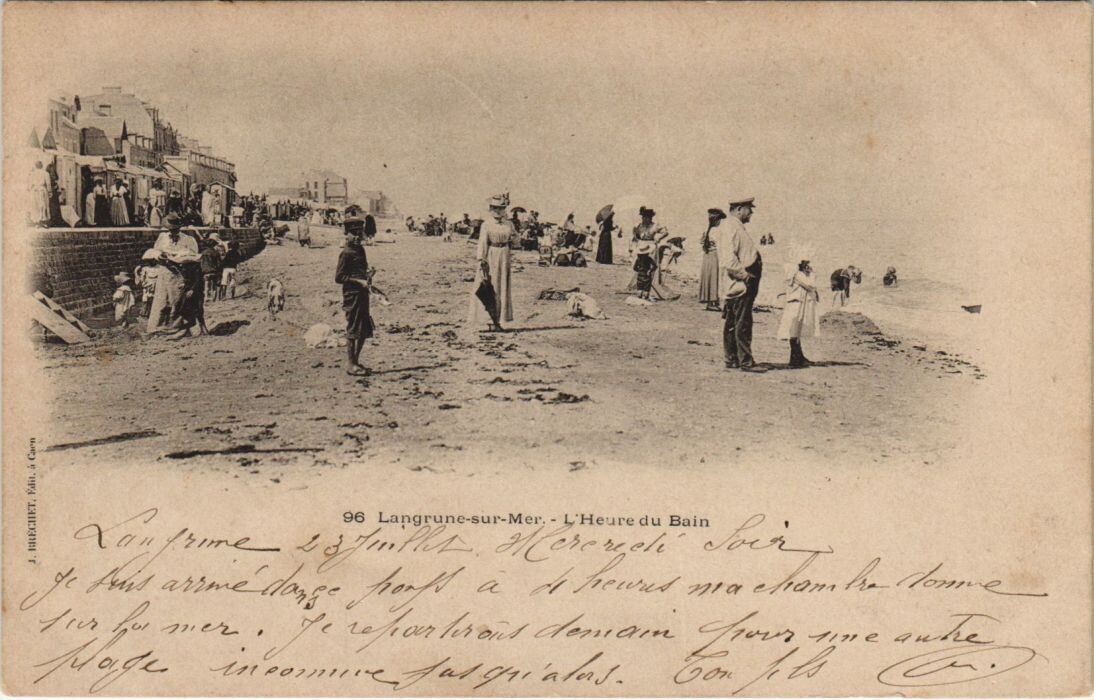 J. BRÉCHET, Edit. à Caen
96 Langrune-sur-Mer. - L'Heure du Bain
Langrune 23 Juillet Mercredi Soir
Je suis arrivé dans ce pays à 4 heures ma chambre donne
sur la mer. Je repartirais demain pour une autre
plage inconnue jusqu'alors. Ton fils